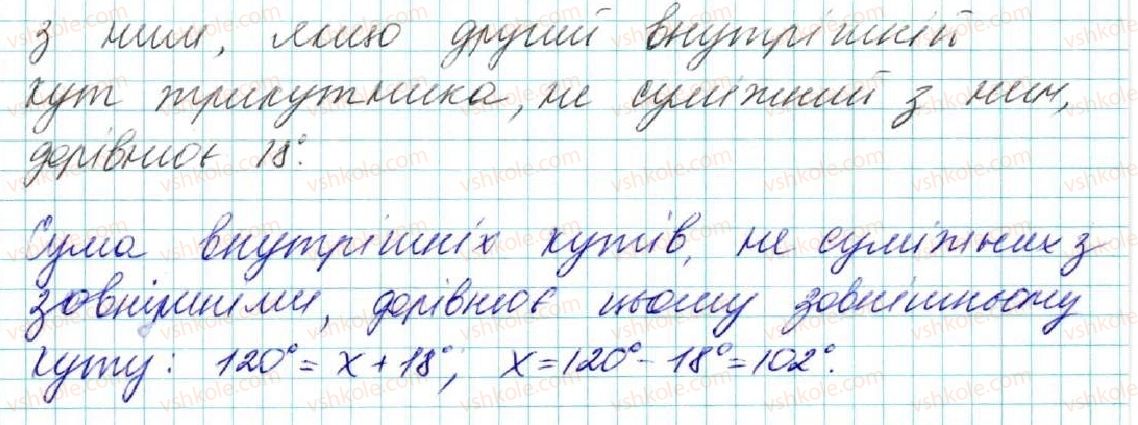 з ним, якщо другий внутрішній
кут трикутника, не суміжний з ним,
дорівнює 18°.
Сума внутрішніх кутів, не суміжних з
зовнішніми, дорівнює цьому зовнішньому
куту: 120° = x + 18°; x = 120° - 18° = 102°.